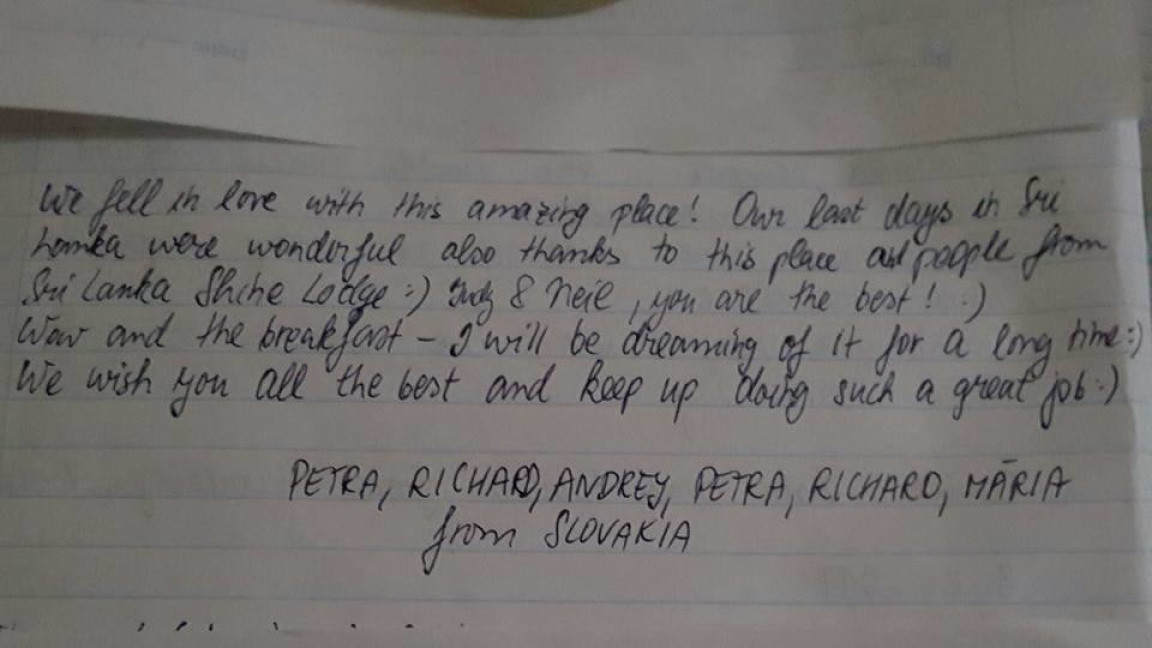 We fell in love with this amazing place! Our last days in Sri
Lanka were wonderful also thanks to this place and people from
Sri Lanka Shine Lodge :) & Neil, you are the best! :)
Wow and the breakfast – I will be dreaming of it for a long time :)
We wish you all the best and keep up doing such a great job :)
PETRA, RICHARD, ANDREJ, PETRA, RICHARD, MÁRIA
from SLOVAKIA